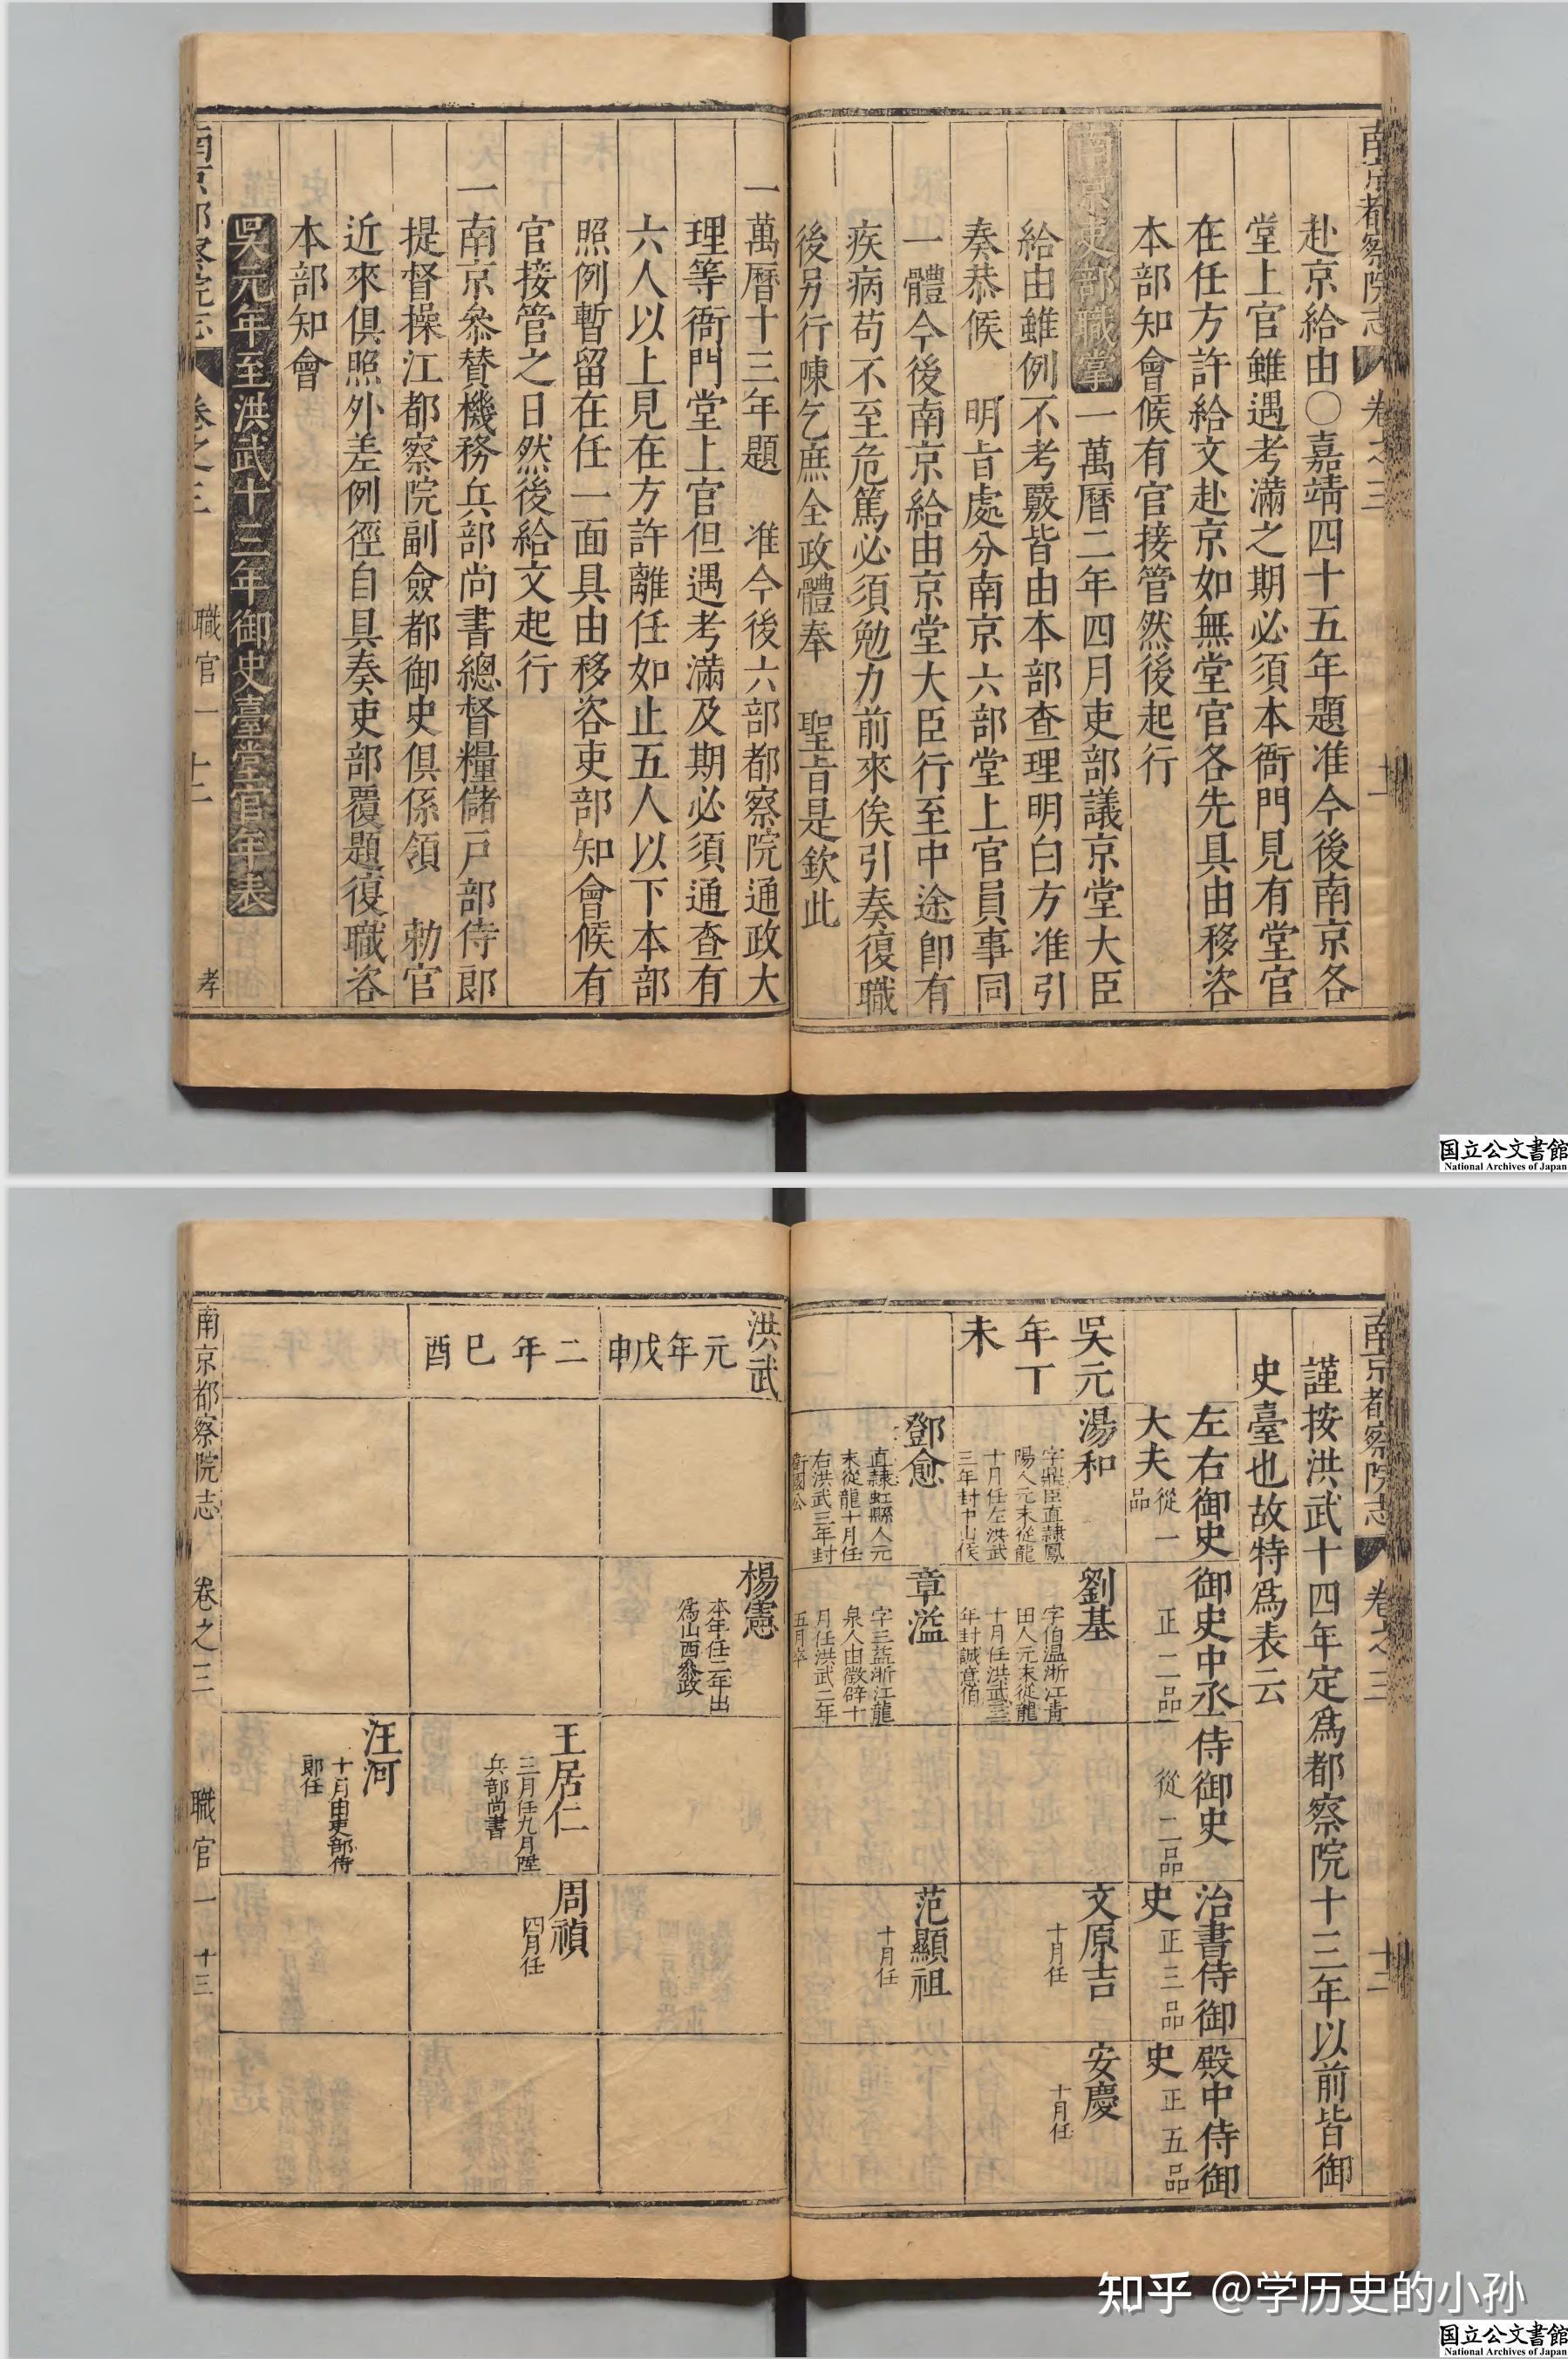 南京都察院志
卷之三
十一
赴京給由○嘉靖四十五年題准今後南京各
堂上官雖遇考滿之期必須本衙門見有堂官
在任方許給文赴京如無堂官各先具由移咨
本部知會候有官接管然後起行
南京吏部職掌一萬曆二年四月吏部議京堂大臣
給由雖例不考覈皆由本部查理明白方准引
奏恭候 明旨處分南京六部堂上官員事同
一體今後南京給由京堂大臣行至中途卽有
疾病苟不至危篤必須勉力前來俟引奏復職
後另行陳乞庶全政體奉 聖旨是欽此
一萬曆十三年題 准今後六部都察院通政大
理等衙門堂上官但遇考滿及期必須通查有
六人以上見在方許離任如止五人以下本部
照例暫留在任一面具由移咨吏部知會候有
官接管之日然後給文起行
一南京叅贊機務兵部尚書總督糧儲戸部侍郎
提督操江都察院副僉都御史俱係領 勅官
近來俱照外差例徑自具奏吏部覆題復職咨
本部知會
吳元年至洪武十三年御史臺堂官年表
南京都察院志
卷之三
職官一 十二
孝
国立公文書館
National Archives of Japan
南京都察院志
卷之三
十二
謹按洪武十四年定爲都察院十三年以前皆御
史臺也故特爲表云
左右御史大夫從一品
御史中丞正二品
侍御史從二品
治書侍御史正三品
殿中侍御史正五品
吳元年丁未
湯和
字鼎臣直隸鳳
陽人元末從龍
十月任左洪武
三年封中山侯
劉基
字伯溫浙江靑
田人元末從龍
十月任洪武三
年封誠意伯
文原吉
十月任
安慶
十月任
鄧愈
直隸虹縣人元
末從龍十月任
右洪武三年封
衛國公
章溢
字三益浙江龍
泉人由徵辟十
月任洪武二年
五月卒
范顯祖
十月任
洪武
元年戊申
楊憲
本年任二年出
爲山西叅政
二年己酉
王居仁
三月任九月陞
兵部尚書
周禎
四月任
汪河
十月由吏部侍
郎任
南京都察院志
卷之三
職官一
十三
知乎 @学历史的小孙
国立公文書館
National Archives of Japan